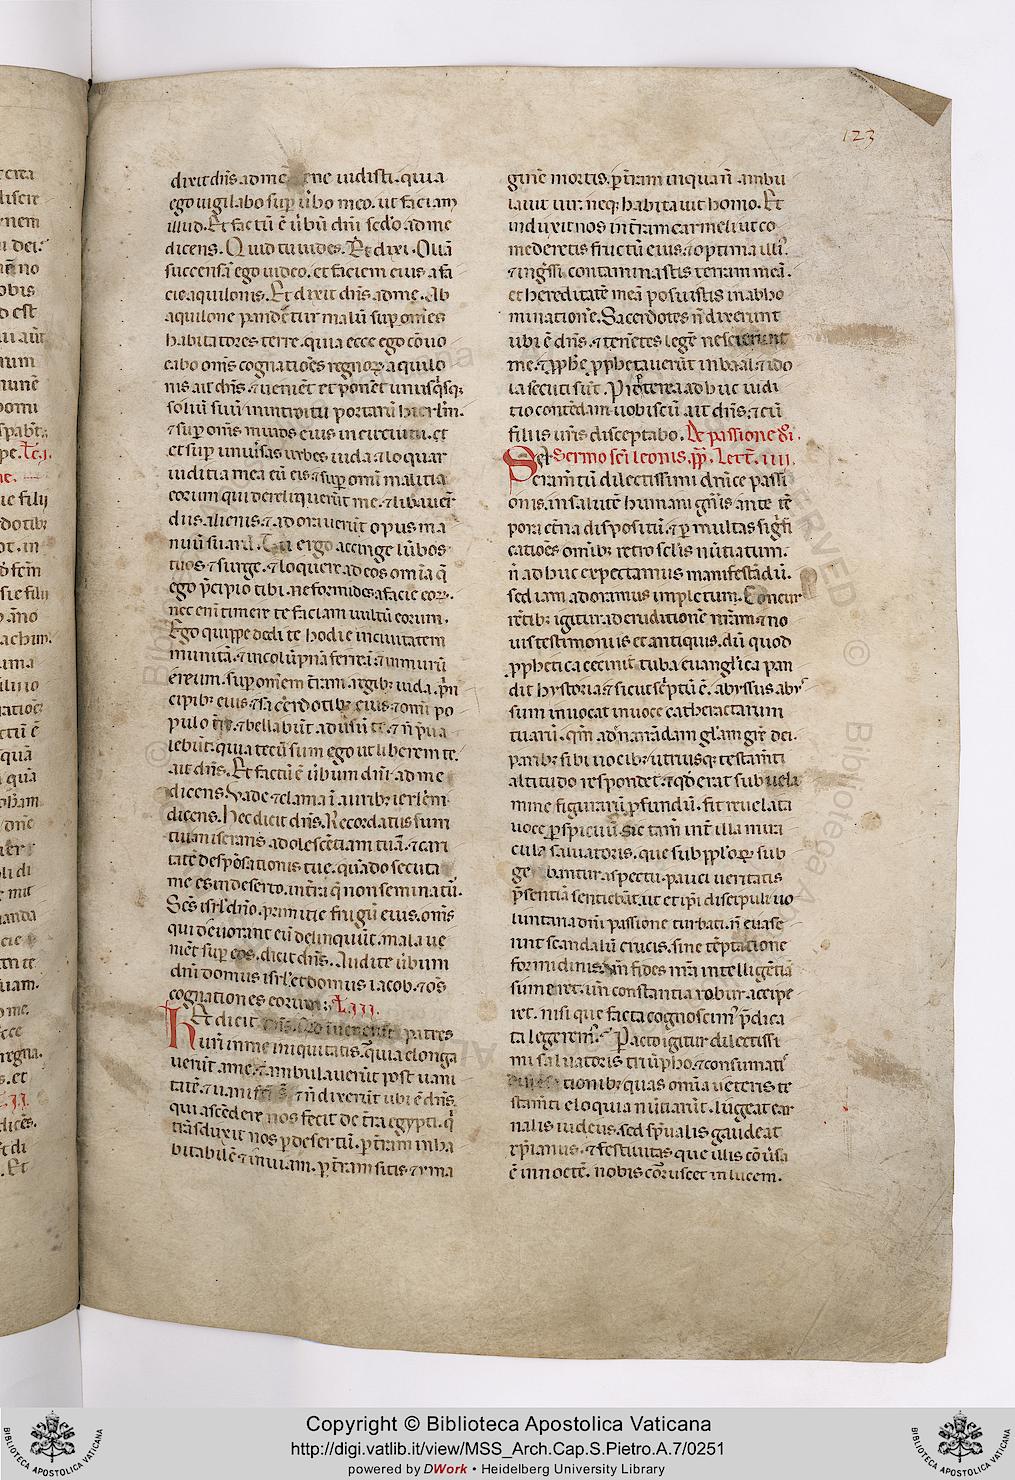 123
dixit dñs ad me ene uidisti. quia
ego uigilabo sup ũbo meo. ut faciam
illud. Et factũ ẽ ũbũ dñi scdo ad me
dicens. Quid tu uides. Et dixi. Ollã
succensã ego uideo. et faciem eius a fa
cie aquilonis. Et dixit dñs ad me. Ab
aquilone pandẽtur malũ sup om̃es
habitatores terre. quia ecce ego cõuo
cabo om̃s cognatiões regnoꝝ aquilo
nis ait dñs. ⁊ ueniẽt et ponẽt unusqsq;
soliũ suũ in introitu portarũ hierlm̃.
⁊ sup om̃s muros eius in circuitu. et
et sup uniũsas urbes iuda ⁊ loquar
iuditia mea cũ eis ⁊ sup om̃i malitia
eorum qui dereliquerũt me. ⁊ libauer̃
diis alienis. ⁊ adorauerũt opus ma
nuũ suarũ. Tu ergo accinge lũbos
tuos ⁊ surge. ⁊ loquere ad eos om̃ia q̃
ego p̃cipio tibi. ne formides a facie eoꝝ.
nec eni timere te faciam uultũ eorum.
Ego quippe dedi te hodie in ciuitatem
munitã. ⁊ in colũpnã ferreã. ⁊ in murũ
ereum. sup om̃em tr̃am. regibꝫ iuda. p̃n
cipibꝫ eius ⁊ sacerdotibꝫ eius ⁊ om̃i po
pulo tr̃e. ⁊ bellabũt aduisũ te. ⁊ ñ p̃ua
lebũt. quia tecũ sum ego ut liberem te.
ait dñs. Et factũ ẽ ũbum dñi ad me
dicens. Vade ⁊ clama ĩ auribꝫ ierlem̃
dicens. Hec dicit dñs. Recordatus sum
tui miserans adolescẽtiam tuã. ⁊ cari
tatẽ despõsationis tue. quãdo secuta
me es in deserto. in tr̃a q̃ non seminatũ.
Scs̃ isrl̃ dño. primitie frugũ eius. om̃s
qui deuorant eũ delinquũt. mala ue
niẽt sup eos. dicit dñs. Audite ũbum
dñi domus isrl̃ et domus iacob. ⁊ oẽs
cognationes eorum. L. III.
Hec dicit dñs. Qd inuenerũt patres
urĩ in me iniquitatis. quia elonga
uerũt a me. ⁊ ambulauerũt post uani
tatẽ. ⁊ uani ⁊ ñ dixerũt ubi ẽ dñs.
qui ascẽdere nos fecit de tr̃a egypti. q̃
trãsduxit nos p desertũ. p tr̃am inha
bitabilẽ ⁊ inuiam. p tr̃am sitis ⁊ yma
ginẽ mortis. p tr̃am in qua ñ ambu
lauit uir. neqꝫ habitauit homo. Et
induxit nos in tr̃am carmeli ut co
mederetis fructũ eius. ⁊ optima illi.
⁊ ingssi contaminastis terram meã.
et hereditatẽ meã posuistis in abho
minationẽ. Sacerdotes ñ dixerunt
ubi ẽ dñs. ⁊ tenẽtes legẽ nescierunt
me. ⁊ pphe prophetauerũt in baal. ⁊ ido
la secuti sũt. Propterea adhuc iudi
tio contẽdam uobiscũ ait dñs. ⁊ cũ
filiis uris disceptabo. De passione dñi.
Sermo scĩ leonis. pp. Lect. IIII.
Sacram̃tũ dilectissimi dñice passi
onis. in salutẽ humani gñis ante tẽ
pora etña dispositũ. ⁊ p multas sigñfi
catiões om̃ibꝫ retro sclis nũtiatum.
ñ adhuc expectamus manifestãdũ.
sed iam adoramus impletum. Concur
rẽtibꝫ igitur ad eruditionẽ nr̃am ⁊ no
uis testimoniis et antiquis. dũ quod
pphetica cecinit tuba euanglica pan
dit hystoria. ⁊ sicut scptũ ẽ. abyssus aby
sum inuocat in uoce catheractarum
tuarũ. qm̃ ad narrãdam glam grẽ dei.
paribꝫ sibi uocibꝫ utriusqꝫ testam̃ti
altitudo respondet. ⁊ qd erat sub uela
mine figurarũ pfundũ. fit reuelata
uoce pspicuũ. Sic tam̃ int illa mira
cula saluatoris. que sub ppl'oꝝ sub
ge bantur aspectu. pauci ueritatis
p̃sentiã sentiebãt. ut et ipi discipuli uo
luntaria dñi passione turbati. ñ euase
runt scandalũ crucis. sine tẽptatione
formidinis. Vñ fides nr̃a intelligẽtiã
sumeret. uñ constantia robur accipe
ret. nisi que facta cognoscim p̃dica
ta legerem. Pacto igitur dilectissi
mi saluatoris triũpho. ⁊ consumati
tionibꝫ quas om̃ia ueteris te
stam̃ti eloquia nũtiarũt. lugeat car
nalis iudeus. sed spualis gaudeat
xp̃ianus. ⁊ festiuitas que illis cõuersa
ẽ in noctẽ. nobis coruscet in lucem.
Copyright © Biblioteca Apostolica Vaticana
http://digi.vatlib.it/view/MSS_Arch.Cap.S.Pietro.A.7/0251
powered by DWork • Heidelberg University Library
BIBLIOTECA APOSTOLICA VATICANA
BIBLIOTECA APOSTOLICA VATICANA